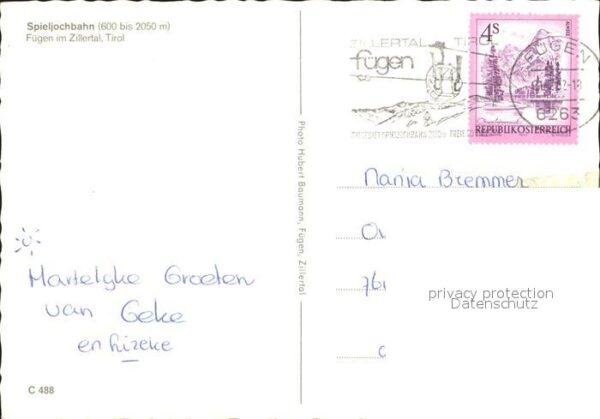 Spieljochbahn (600 bis 2050 m)
Fügen im Zillertal, Tirol
ZILLERTAL TIROL
fügen
4S
REPUBLIK ÖSTERREICH
FÜGEN
6263
Photo Hubert Baumann, Fügen, Zillertal
Bremmer
761
privacy protection
Datenschutz
Hartelyke Groeten
van Geke
en Lizeke
C 488